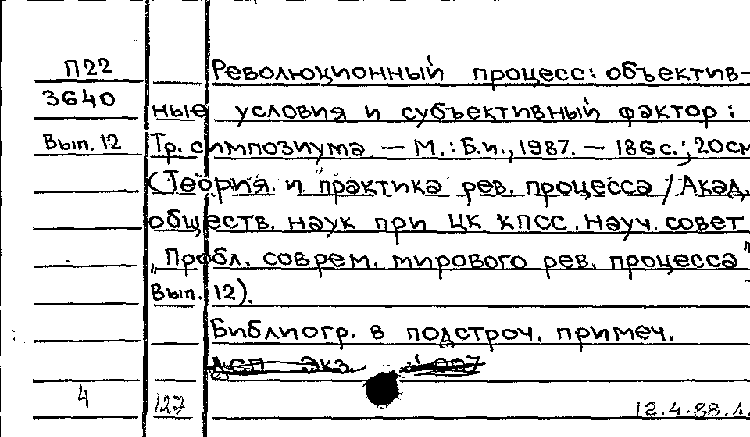 П22 Революционный процесс: объектив-
3640 ные условия и субъективный фактор:
Вып. 12 Тр. симпозиума. — М.: Б.и., 1987. — 186 с.; 20см
(Теория и практика рев. процесса / Акад.
обществ. наук при ЦК КПСС. Науч. совет
„Пробл. соврем. мирового рев. процесса"
Вып. 12).
Библиогр. в подстроч. примеч.
ДСП Экз.
4 127 12.4.88.